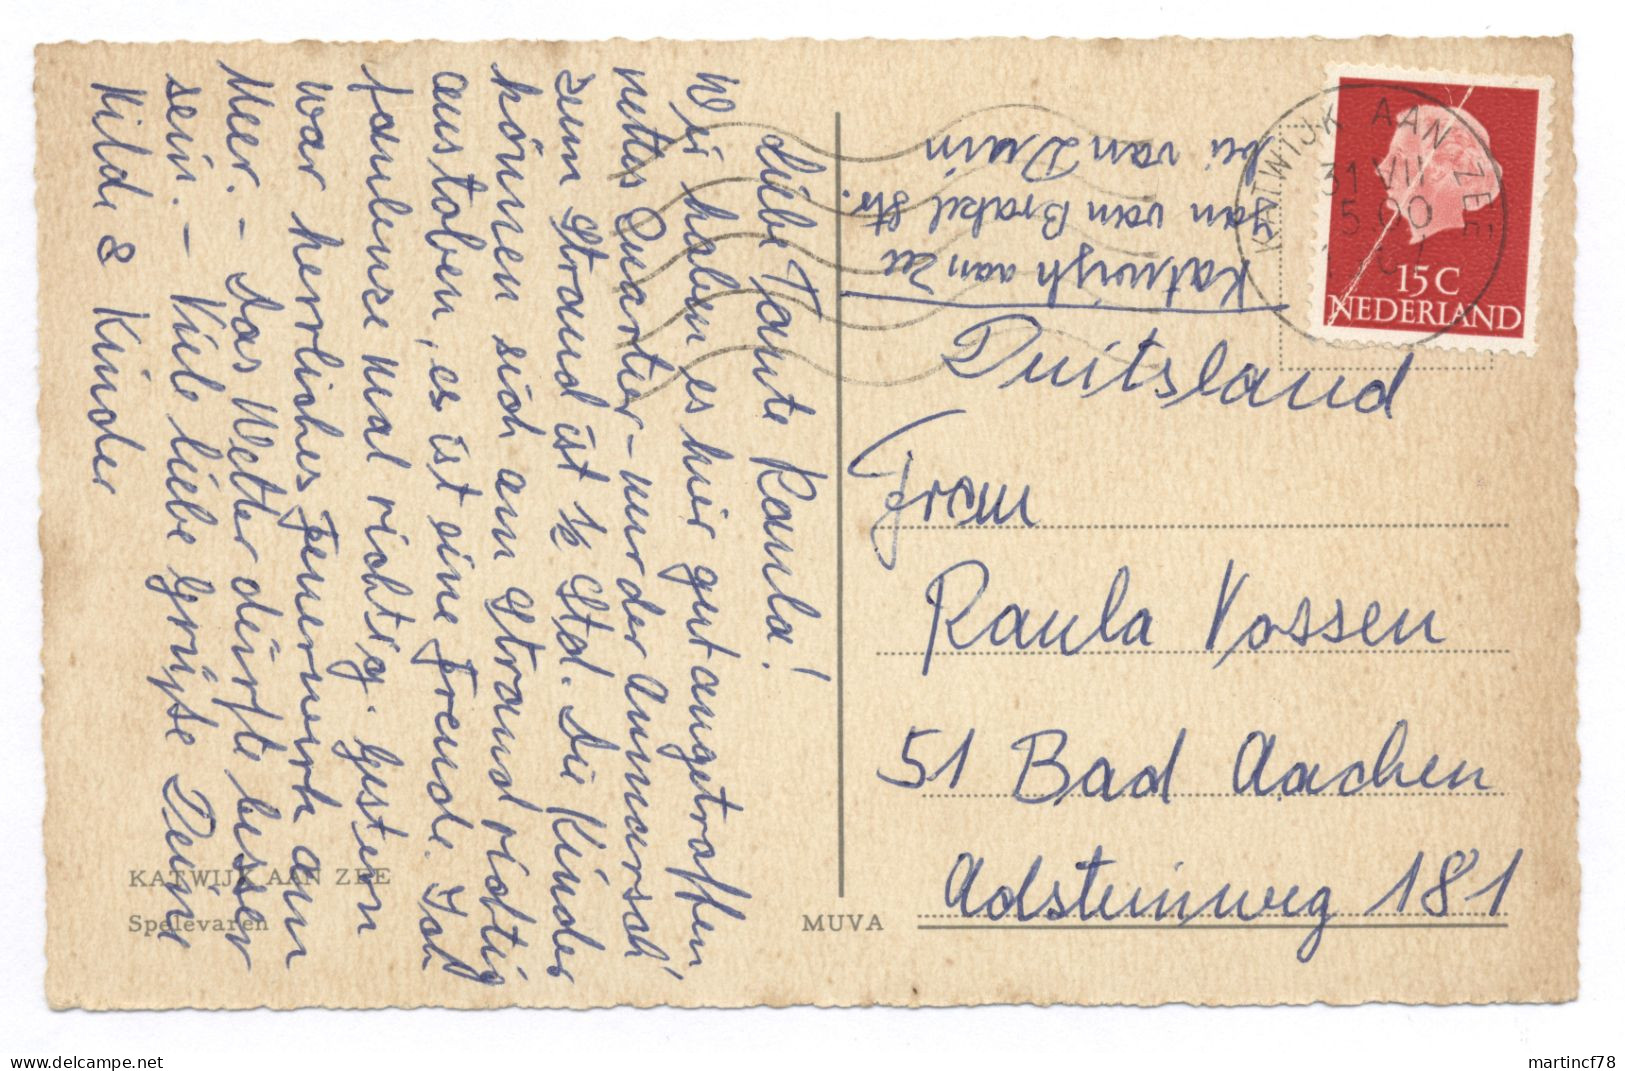 Liebe Tante Raula!
Wir haben es hier gut angetroffen
nettes Quartier – nur der Anmarsch
zum Strand ist 1/2 Std. Die Kinder
können sich am Strand richtig
austoben, es ist eine Freude. Ich
faulenze mal richtig. Gestern
war herrliches Feuerwerk am
Meer. – Das Wetter dürfte besser
sein. – Viele liebe Grüße Deine
Hilde & Kinder
KATWIJK AAN ZEE
Spelevaren
MUVA
bei van Duin
Jan van Brakel Str.
Katwijk aan Zee
KATWIJK AAN ZEE
31 VII
15 C
NEDERLAND
Duitsland
Frau
Raula Vossen
51 Bad Aachen
Adsteinweg 181
martincf78